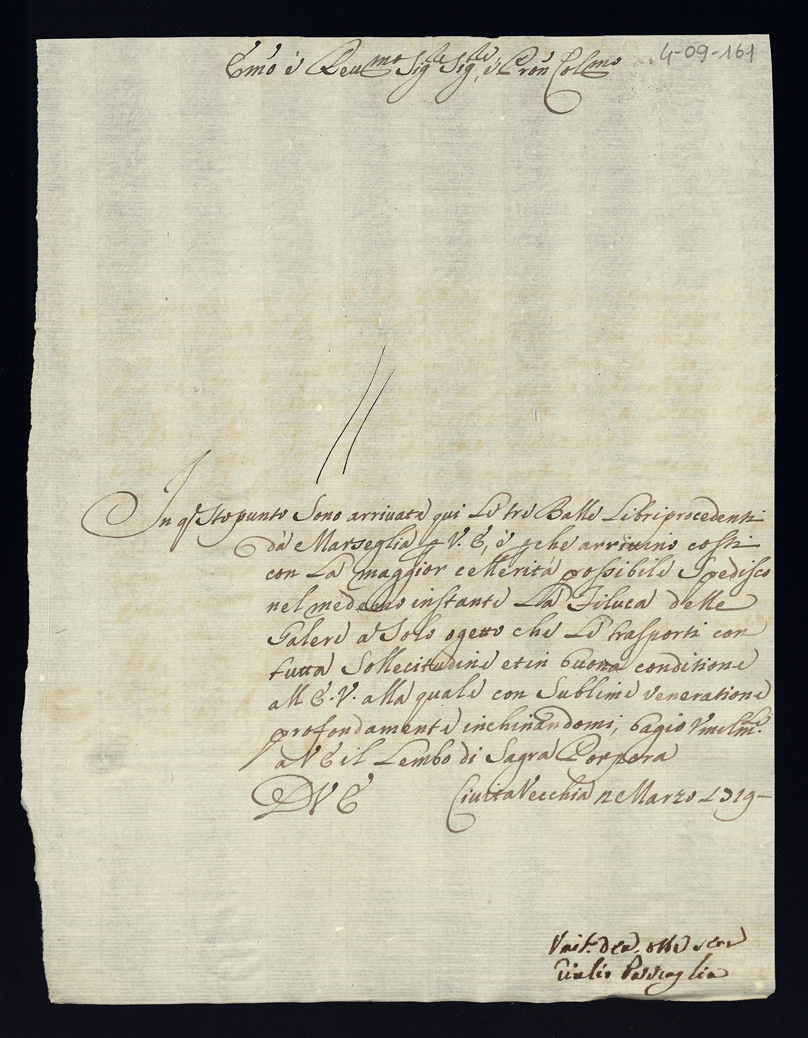 4-09-161
Emo è Reu.mo Sig.re Sig.re, è Pron Col.mo
In q̃sto punto sono arriuate qui Le tre Balle Libri procedenti
da Marseglia ꝑ V. E, è ꝑche arriuino costi
con La maggior cellerità possibile Spedisco
nel medemo instante La Filuca delle
Galere a Solo ogetto che Le trasporti con
tutta Sollecitudine et in buona conditione
all E. V. alla quale con Sublime veneratione
profondamente inchinandomi, bagio Vmilm.te
a V E il Lembo di Sagra Porpora
D V E Ciuita Vecchia Marzo 1719
Deu. serre
Giulio Passaglia